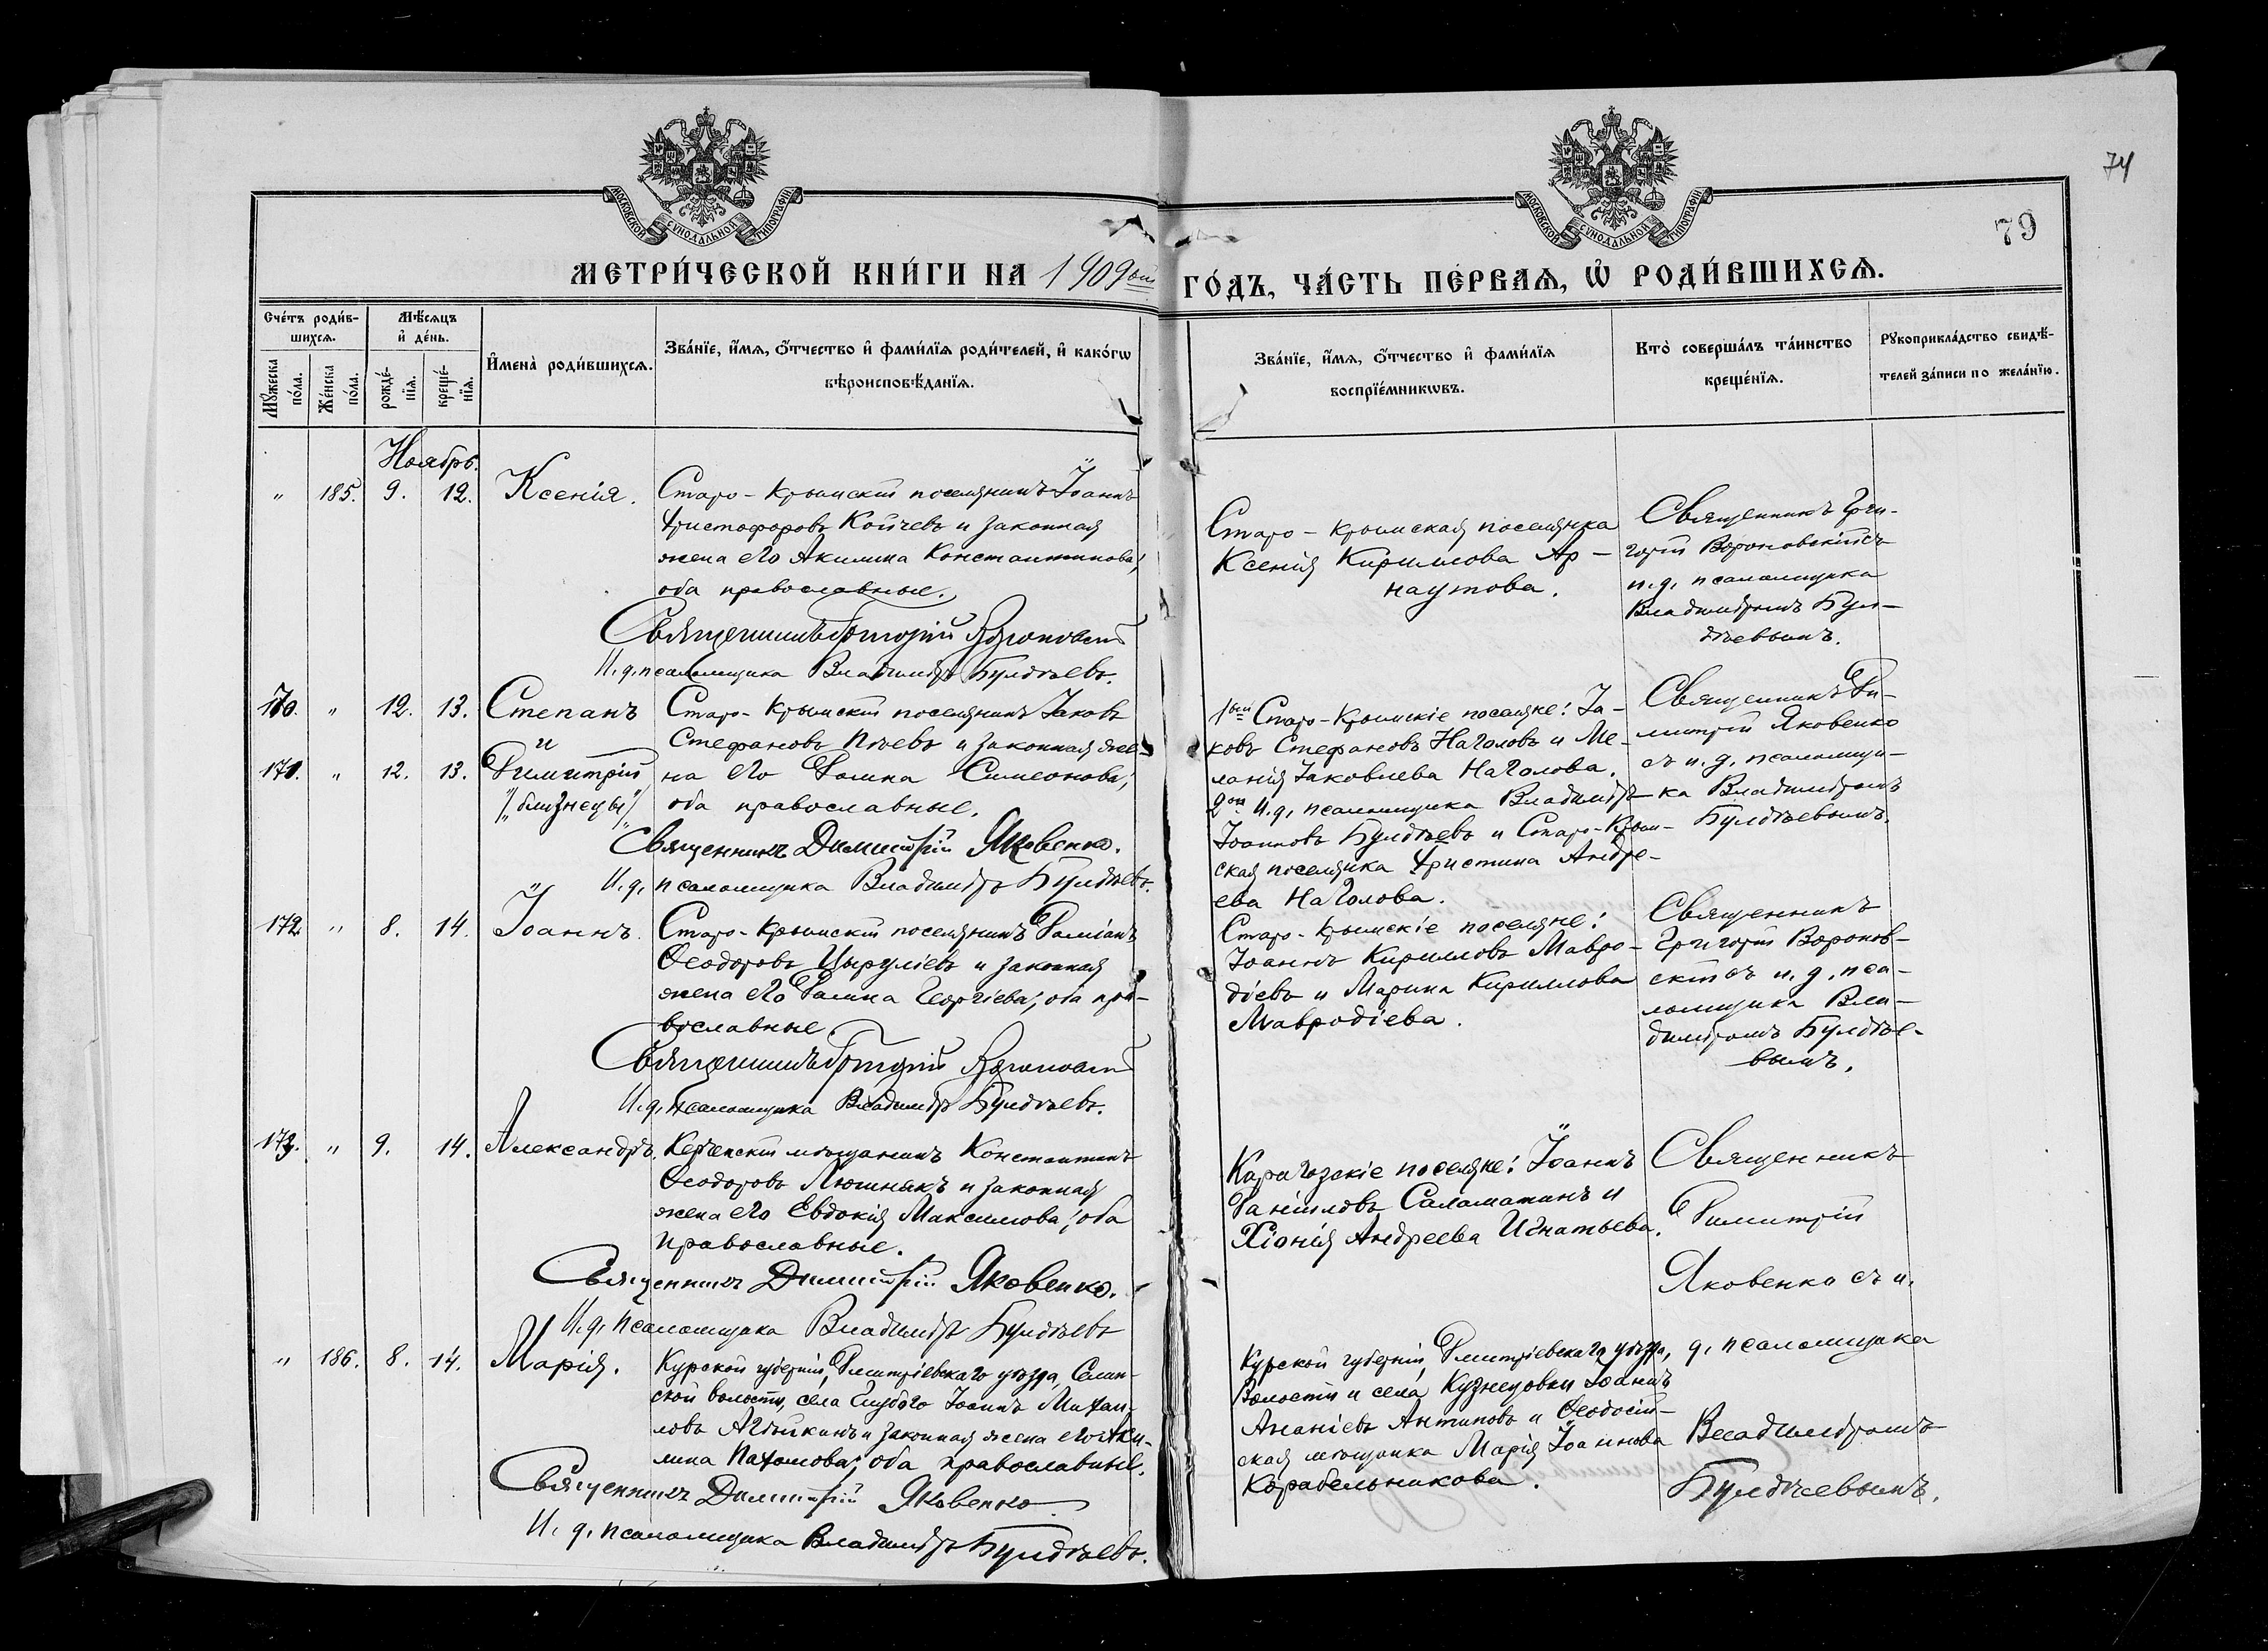 74
79
МОСКОВСКОЙ СѴНОДАЛЬНОЙ ТИПОГРАФІИ
МОСКОВСКОЙ СѴНОДАЛЬНОЙ ТИПОГРАФІИ
МЕТРИ́ЧЕСКОЙ КНИ́ГИ НА 1909ый ГО́ДЪ, ЧА́СТЬ ПЕ́РВАѦ, Ѡ҆ РОДИ́ВШИХСѦ.
Сче́тъ роди́в-
шихсѧ.
Мꙋ́жеска
по́ла.
Же́нска
по́ла.
Мѣ́сѧцъ
и҆ де́нь.
рожде́-
нїѧ.
креще́-
нїѧ.
И҆мена̀ роди́вшихсѧ.
Зва́нїе, и҆́мѧ, ѻ҆́тчество и҆ фами́лїѧ роди́телей, и҆ како́гѡ
вѣроисповѣ́данїѧ.
Зва́нїе, и҆́мѧ, ѻ҆́тчество и҆ фами́лїѧ
воспрїе́мникѡвъ.
Кто̀ соверша́лъ та́инство
креще́нїѧ.
Рꙋкоприкла́дство свидѣ́-
телей за́писи по жела́нїю.
Ноябрь.
" 185. 9. 12. Ксенія.
Старо-Крымскій поселянинъ Іоаннъ
Христофоровъ Койчевъ и законная
жена его Акилина Константинова;
оба православные.
Священникъ Григорій Вороновскій
И.д. псаломщика Владиміръ Булдѣевъ.
Старо-Крымская поселянка
Ксенія Кириллова Ар-
наутова.
Священникъ Гри-
горій Вороновскій съ
и.д. псаломщика
Владиміромъ Бул-
дѣевымъ.
170. " 12. 13. Степанъ
и
171. " 12. 13. Димитрій
"/близнецы/"
Старо-Крымскій поселянинъ Іаковъ
Стефановъ Пчевъ и законная же-
на его Домна Симеонова;
оба православные.
Священникъ Димитрій Яковенко.
И.д. псаломщика Владиміръ Булдѣевъ.
1ый Старо-Крымскіе поселяне: Іа-
ковъ Стефановъ Наголовъ и Ме-
ланія Іаковлева Наголова.
2ой И.д. псаломщика Владиміръ
Іоанновъ Булдѣевъ и Старо-Крым-
ская поселянка Христина Андре-
ева Наголова.
Священникъ Ди-
митрій Яковенко
съ и.д. псаломщи-
ка Владиміромъ
Булдѣевымъ.
172. " 8. 14. Іоаннъ.
Старо-Крымскій поселянинъ Даміанъ
Ѳеодоровъ Цырулієвъ и законная
жена его Домна Георгіева; оба пра-
вославные.
Священникъ Григорій Вороновскій
И.д. псаломщика Владиміръ Булдѣевъ.
Старо-Крымскіе поселяне:
Іоаннъ Кирилловъ Мавро-
діевъ и Марина Кириллова
Мавродіева.
Священникъ
Григорій Воронов-
скій съ и.д. пса-
ломщика Вла-
диміромъ Булдѣе-
вымъ.
173. " 9. 14. Александръ.
Керченскій мѣщанинъ Константинъ
Ѳеодоровъ Люшнякъ и законная
жена его Евдокія Максимова; оба
православные.
Священникъ Димитрій Яковенко.
И.д. псаломщика Владиміръ Булдѣевъ
Карагозскіе поселяне: Іоаннъ
Даніиловъ Саламатинъ и
Хіонія Андреева Игнатьева.
Священникъ
Димитрій
Яковенко съ и.
д. псаломщика
Владиміромъ
Булдѣевымъ.
" 186. 8. 14. Марія.
Курской губерніи, Дмитріевскаго уѣзда, Селин-
ской волости, села Глубого Іоаннъ Михаи-
ловъ и законная жена его Аки-
лина Пахомова; оба православные.
Священникъ Димитрій Яковенко
И.д. псаломщика Владиміръ Булдѣевъ.
Курской губерніи, Дмитріевскаго уѣзда,
Волости и села Кузнецовки Іоаннъ
Ананіевъ Антиповъ и Ѳеодосій-
ская мѣщанка Марія Іоаннова
Корабельникова.